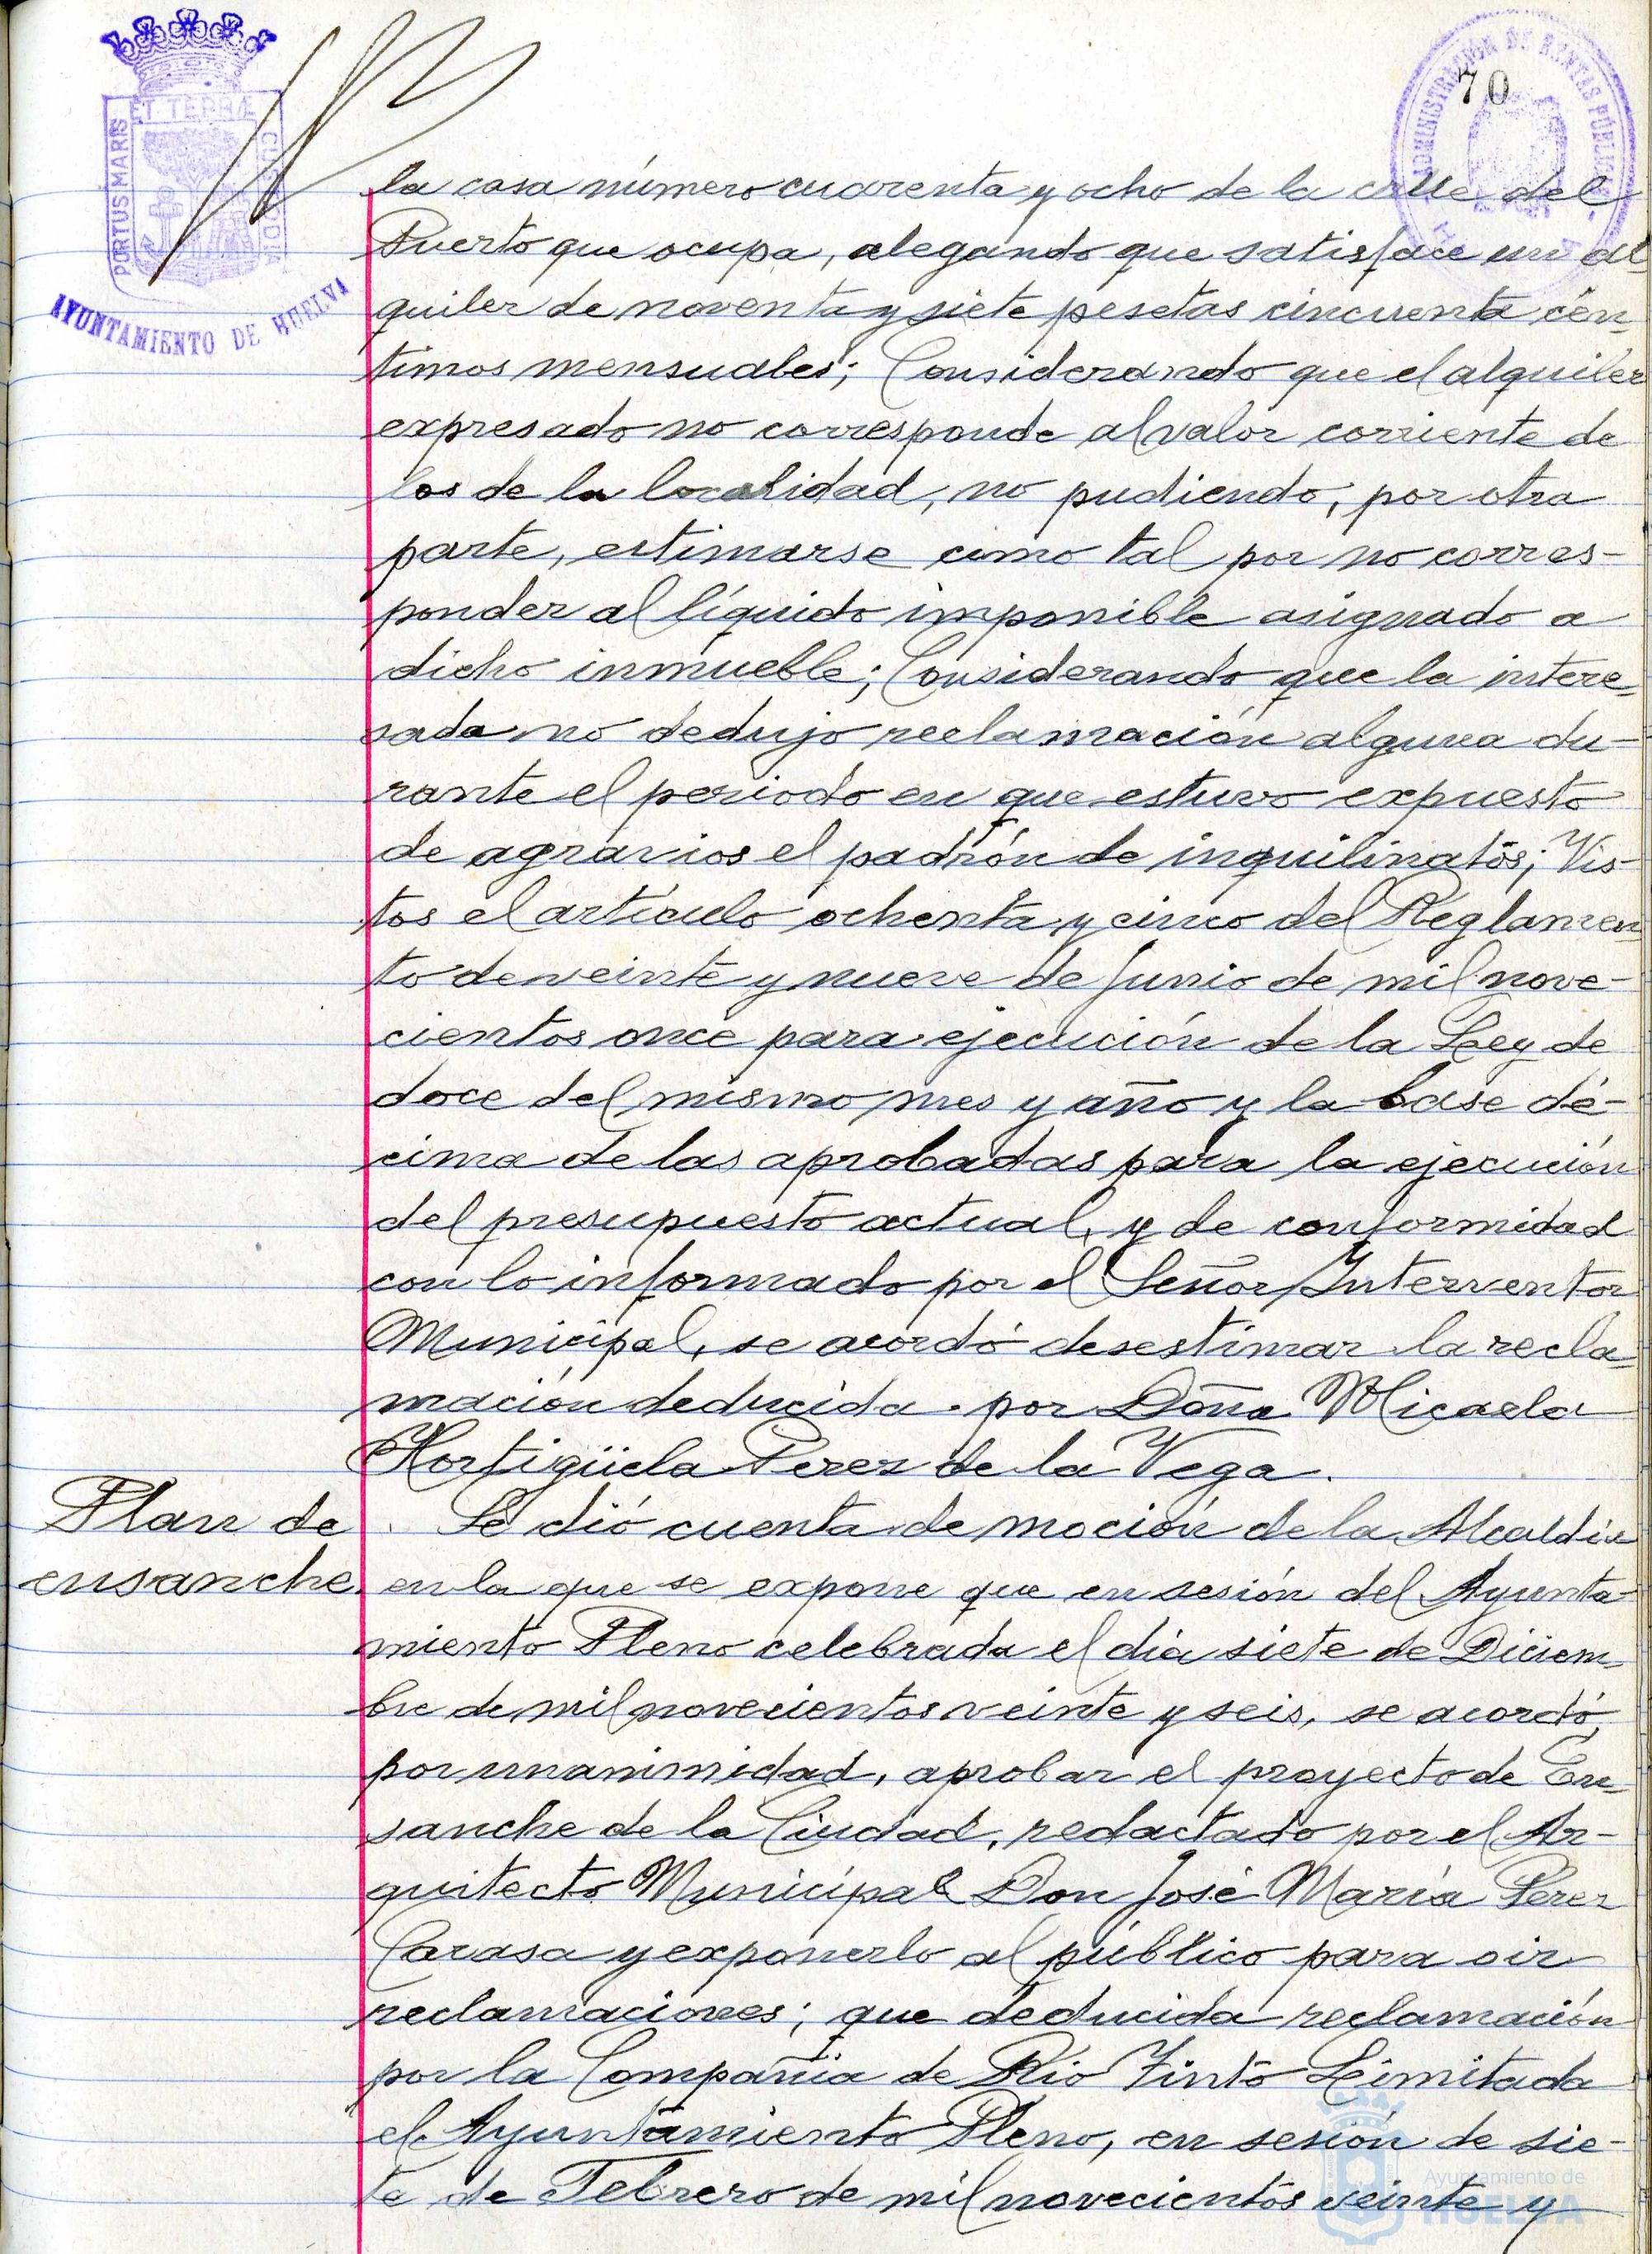 70
ADMINISTRACIÓN DE RENTAS PÚBLICAS
PORTUS MARIS
ET TERRÆ
CUSTODIA
AYUNTAMIENTO DE HUELVA
la casa número cuarenta y ocho de la calle del
Puerto que ocupa, alegando que satisface un al-
quiler de noventa y siete pesetas cincuenta cén-
timos mensuales; Considerando que el alquiler
expresado no corresponde al valor corriente de
los de la localidad, no pudiendo, por otra
parte, estimarse como tal por no corres-
ponder al líquido imponible asignado a
dicho inmueble; Considerando que la intere-
sada no dedujo reclamación alguna du-
rante el periodo en que estuvo expuesto
de agravios el padrón de inquilinatos; Vis-
tos el artículo ochenta y cinco del Reglamen-
to de veinte y nueve de Junio de mil nove-
cientos once para ejecución de la Ley de
doce del mismo mes y año y la base dé-
cima de las aprobadas para la ejecución
del presupuesto actual, y de conformidad
con lo informado por el Señor Interventor
Municipal, se acordó desestimar la recla-
mación deducida por Doña Micaela
Hortigüela Perez de la Vega.
Plan de
ensanche.
Se dió cuenta de moción de la Alcaldía
en la que se expone que en sesión del Ayunta-
miento Pleno celebrada el día siete de Diciem-
bre de mil novecientos veinte y seis, se acordó,
por unanimidad, aprobar el proyecto de En-
sanche de la Ciudad, redactado por el Ar-
quitecto Municipal Don José María Perez
Carasa y exponerlo al público para oir
reclamaciones; que deducida reclamación
por la Compañía de Rio Tinto Limitada
el Ayuntamiento Pleno, en sesión de sie-
te de Febrero de mil novecientos veinte y
Ayuntamiento de
HUELVA